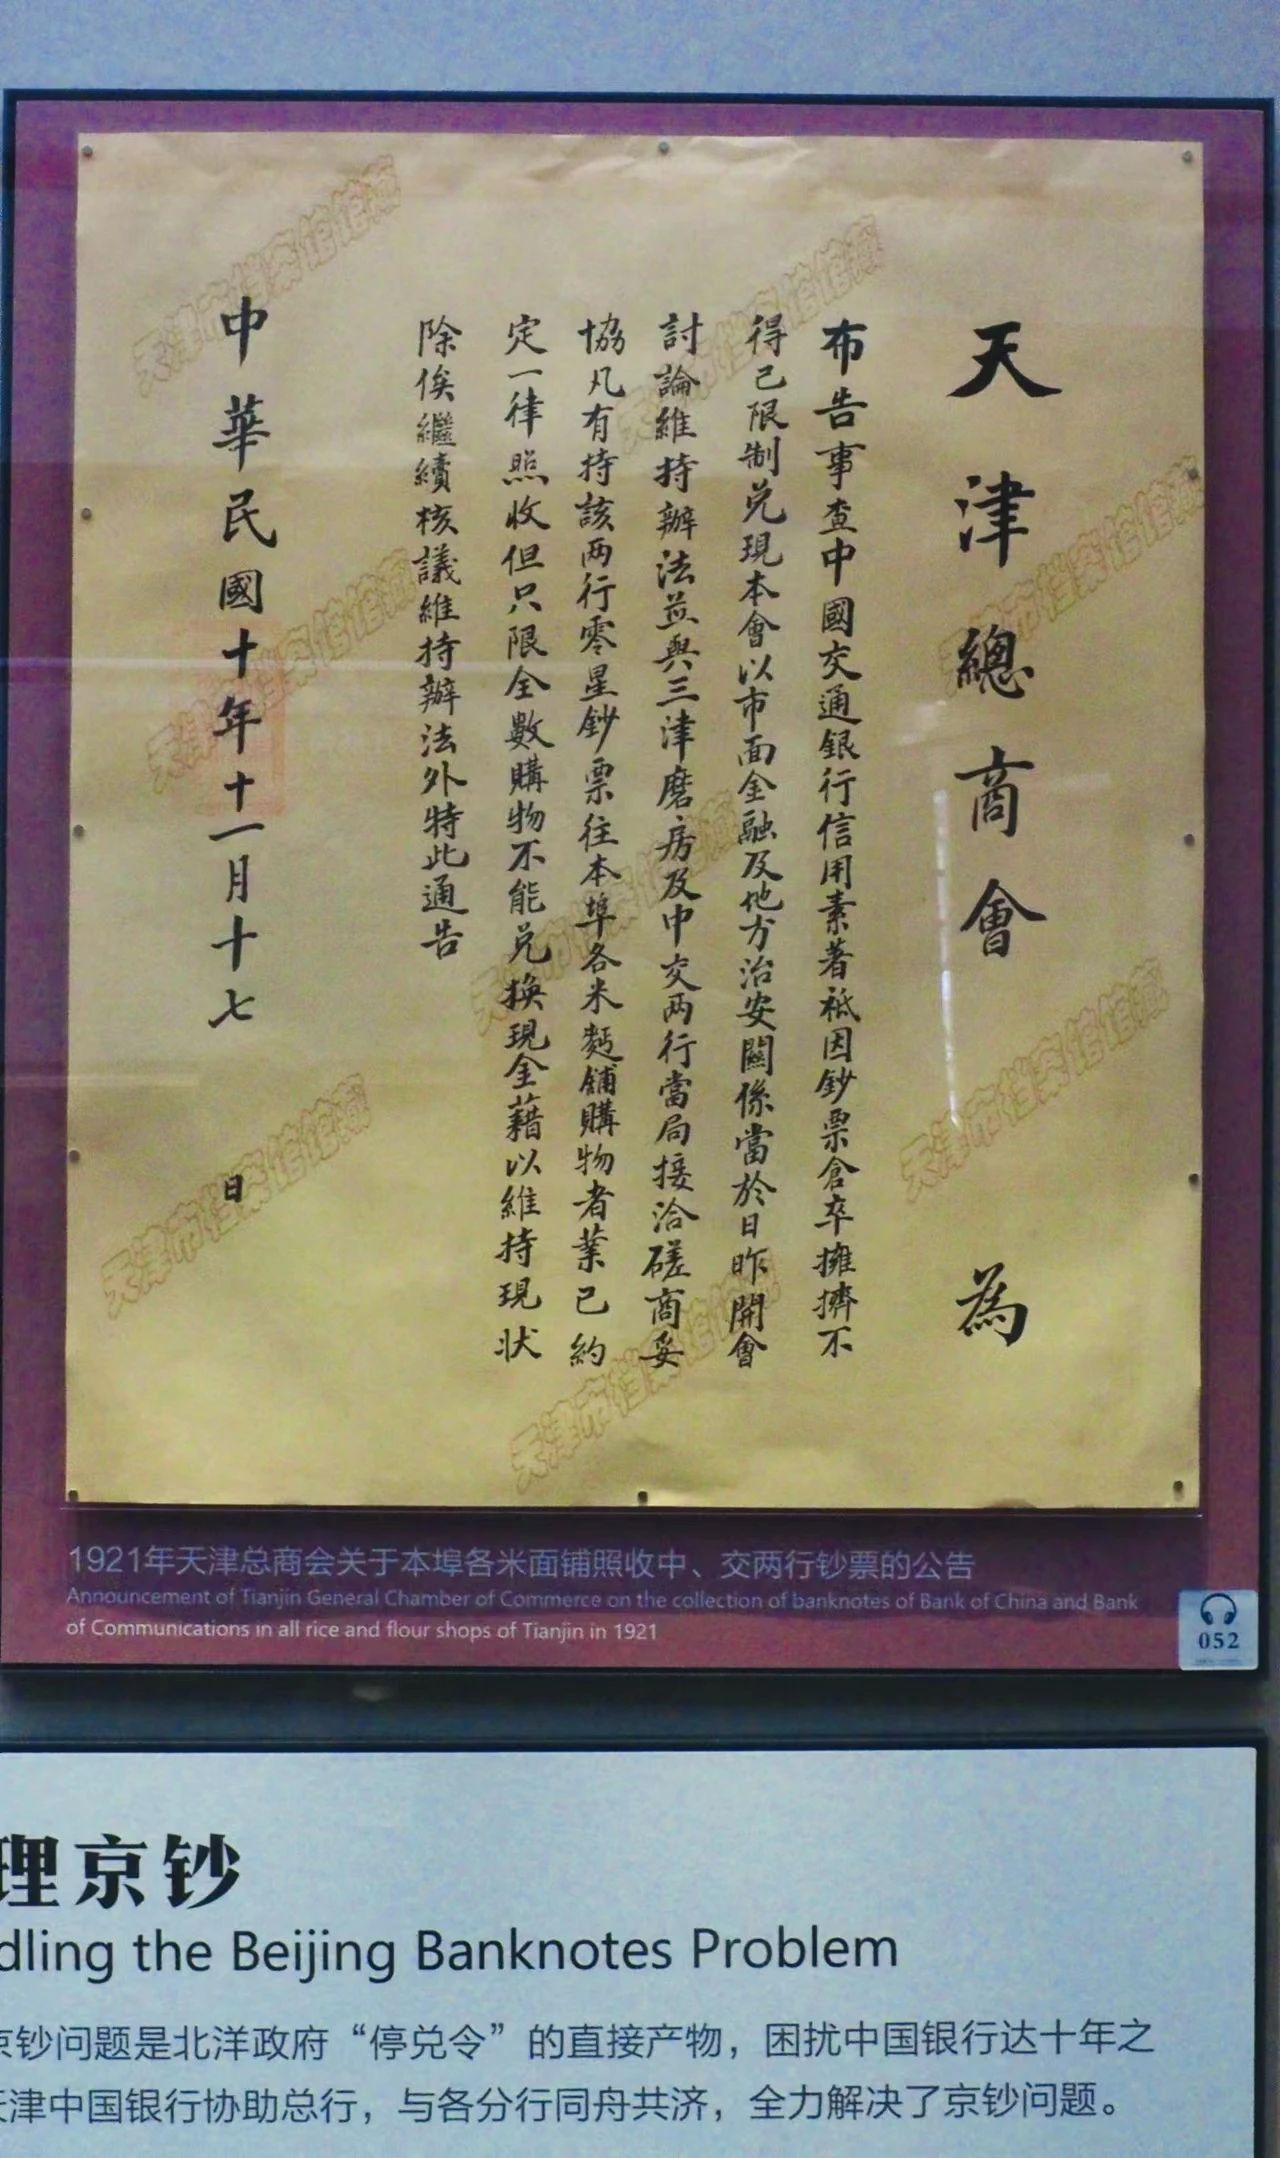 天津總商會 為
布告事查中國交通銀行信用素著祗因鈔票倉卒擁擠不
得已限制兑現本會以市面金融及他方治安關係當於日昨開會
討論維持辦法並與三津磨房及中交两行當局接洽磋商妥
協凡有持該两行零星鈔票往本埠各米麪舖購物者業已約
定一律照收但只限全數購物不能兑換現金藉以維持現状
除俟繼續核議維持辦法外特此通告
中華民國十年十一月十七日
天津市档案馆馆藏
天津市档案馆馆藏
天津市档案馆馆藏
天津市档案馆馆藏
天津市档案馆馆藏
天津市档案馆馆藏
天津市档案馆馆藏
天津市档案馆馆藏
1921年天津总商会关于本埠各米面铺照收中、交两行钞票的公告
Announcement of Tianjin General Chamber of Commerce on the collection of banknotes of Bank of China and Bank
of Communications in all rice and flour shops of Tianjin in 1921
052
理京钞
dling the Beijing Banknotes Problem
京钞问题是北洋政府“停兑令”的直接产物，困扰中国银行达十年之
天津中国银行协助总行，与各分行同舟共济，全力解决了京钞问题。